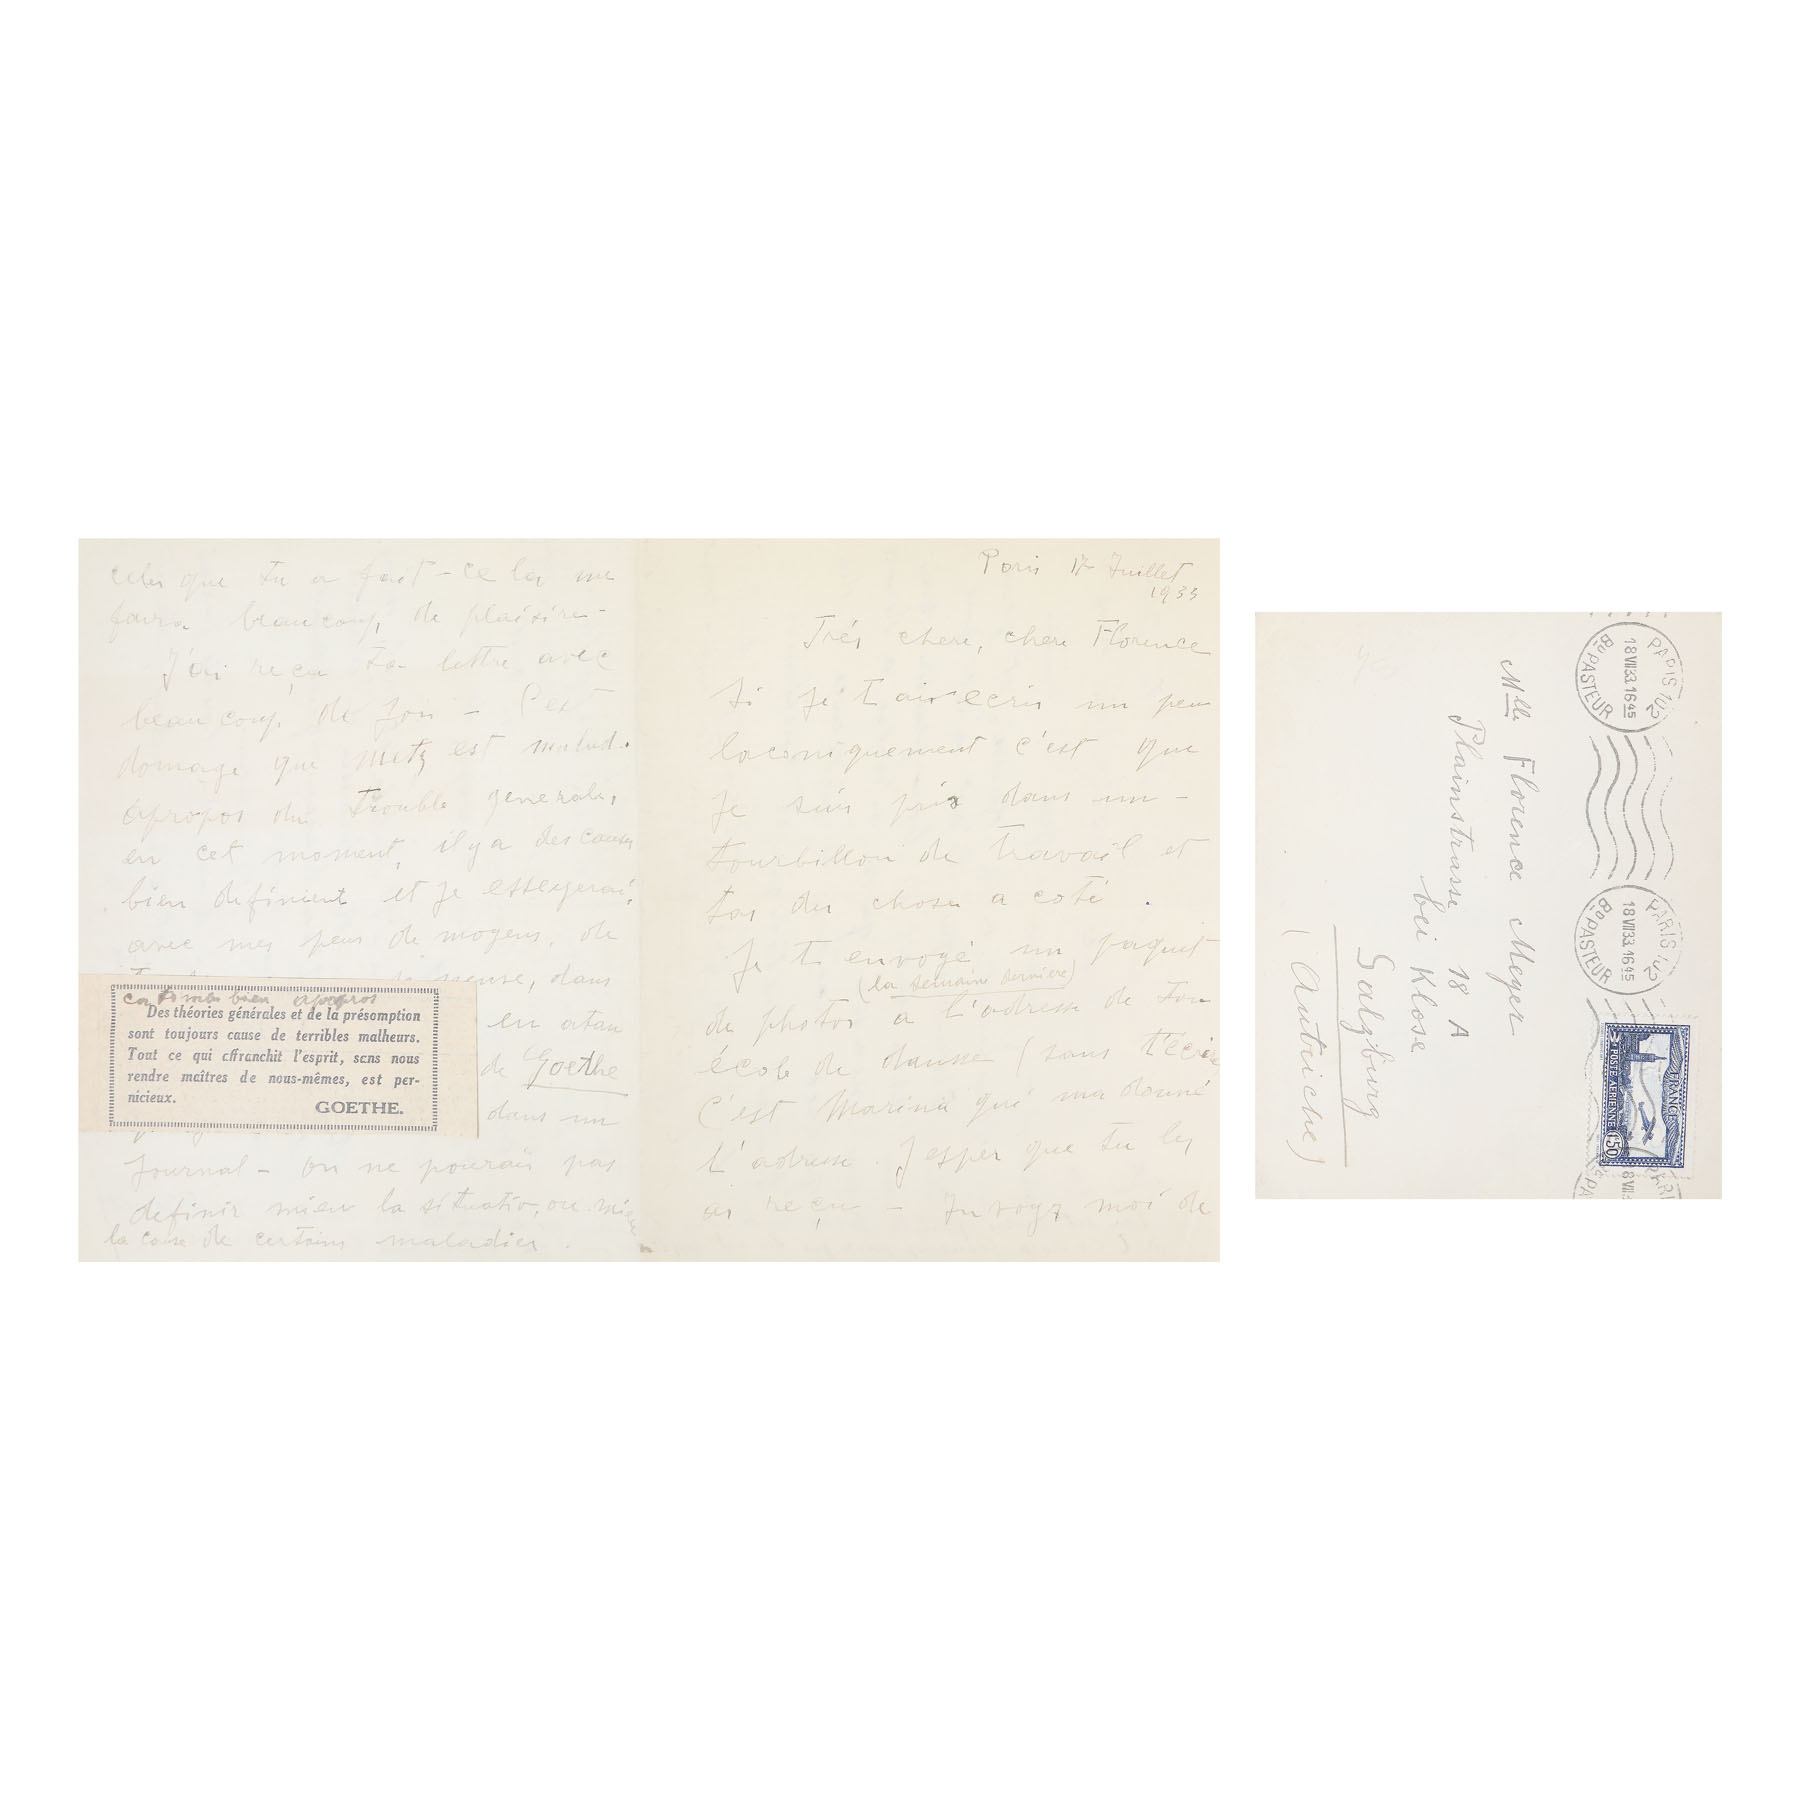 Paris 17 Juillet
1933
Trés chere, chere Florence
Si je t'ai ecris un peu
laconiquement c'est que
je suis pris dans un -
tourbillon de travail et
tas des chose a coté .
Je t envoyé un paquet
(la semaine dernière)
de photos a l'adresse de ton
école de dansse (sans t'écrire
C'est Marina qui ma donné
l'adresse. J esper que tu les
ai reçu - Envoyz moi de
celes que tu a fait - ce la me
faira beaucoup, de plaisire -
J'ai reçu ta lettre avec
beaucoup de joi - C'est
domage que Metz est malad.
apropos du trouble generale,
en cet moment, il y a des causes
bien definient et je esseyerai,
avec mes peu de moyens, de
dans
en atan
de Goethe
dans un
journal - on ne pourais pas
definir mieu la situatio, ou mieu
la cose de certains maladies .
ca tombe bien apropos
Des théories générales et de la présomption
sont toujours cause de terribles malheurs.
Tout ce qui affranchit l'esprit, sans nous
rendre maîtres de nous-mêmes, est per-
nicieux.
GOETHE.
Mlle Florence Meyer
Plainstrasse 18 A
bei Klose
Salzburg
(Autriche)
PARIS 102
18 VII 33 1645
Bd PASTEUR
PARIS 102
18 VII 33 1645
Bd PASTEUR
FRANCE
POSTE AERIENNE
1F50